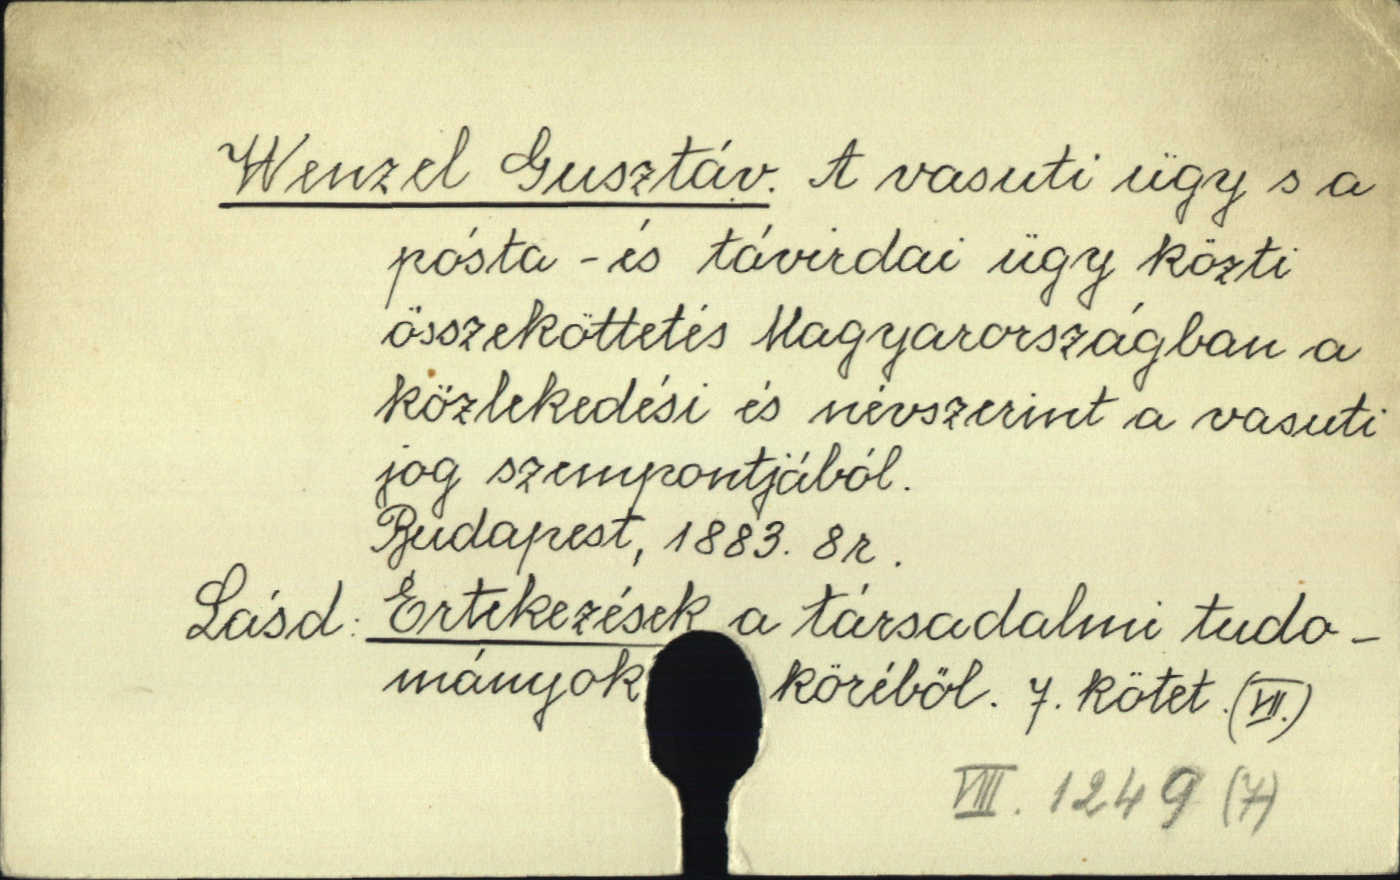 Wenzel Gusztáv. A vasuti ügy s a
pósta - és távirdai ügy közti
összeköttetés Magyarországban a
közlekedési és névszerint a vasuti
jog szempontjából.
Budapest, 1883. 8r.
Lásd: Értekezések a társadalmi tudo-
mányok köréből. 7. kötet. (VII.)
VIII. 1249 (7)